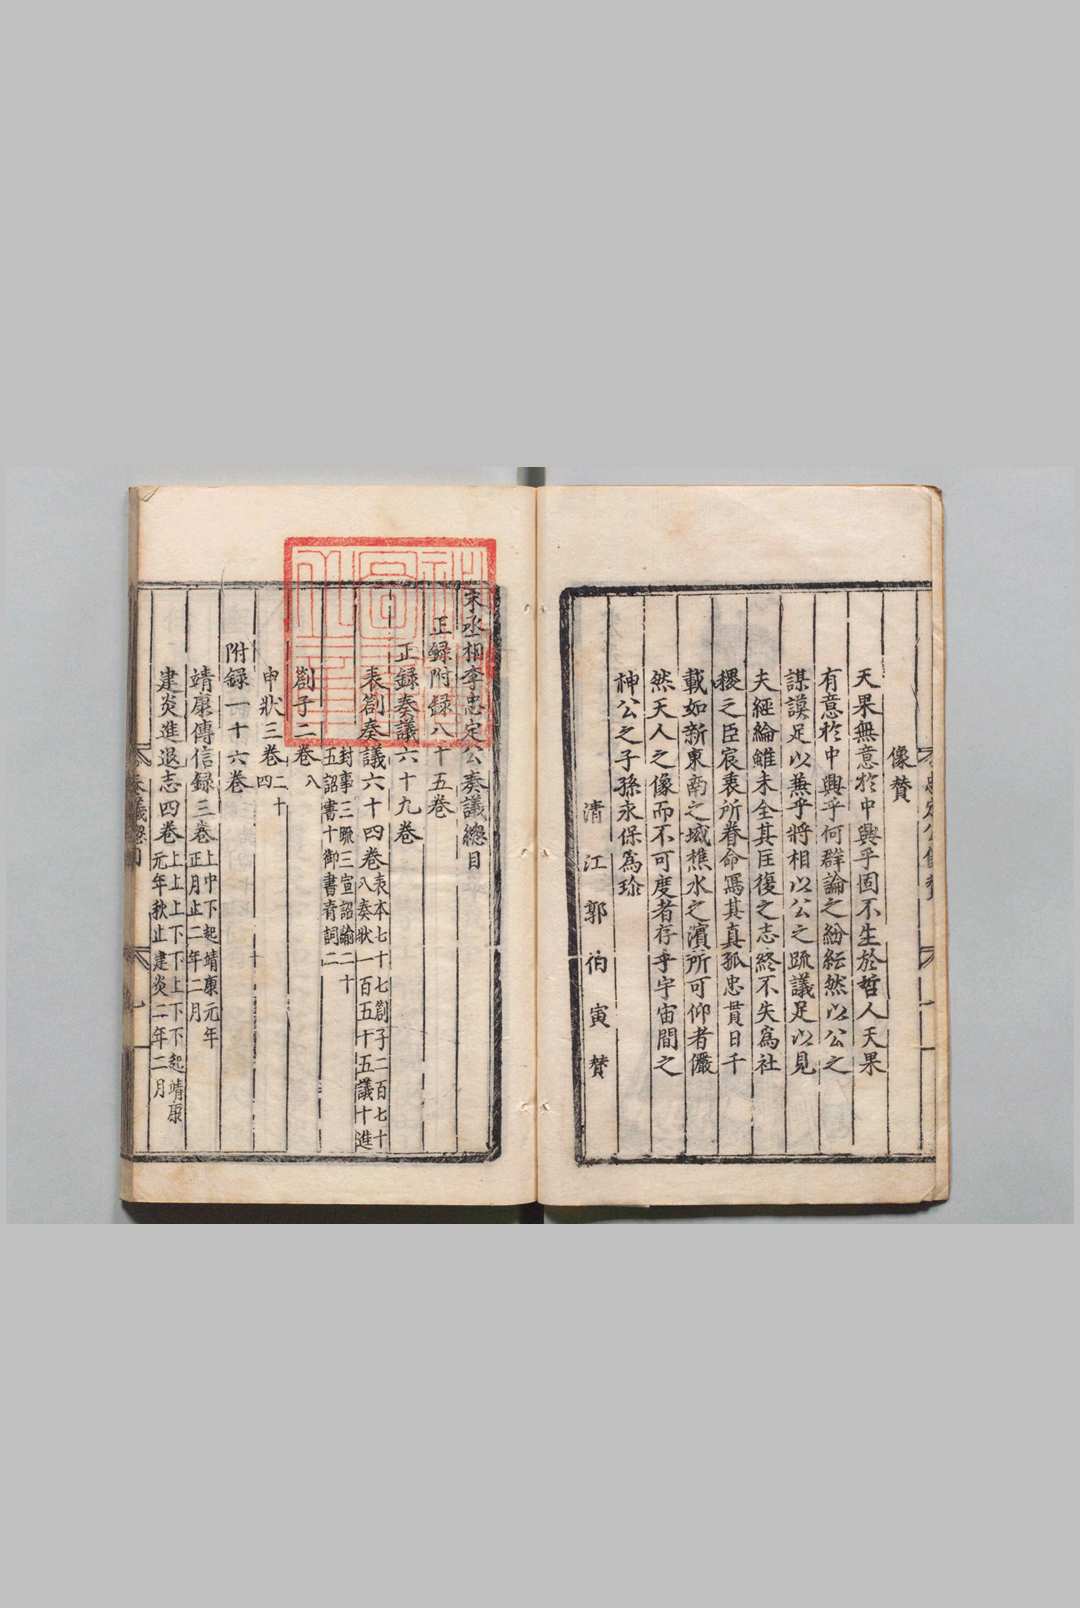 像贊
天果無意於中興乎固不生於哲人天果
有意於中興乎何群論之紛紜然以公之
謀謨足以兼乎將相以公之䟽議足以見
夫經綸雖未全其匡復之志終不失為社
稷之臣宸衷所眷命寫其真孤忠貫日千
載如新東南之城樵水之濱所可仰者儼
然天人之像而不可度者存乎宇宙間之
神公之子孫永保為珍
清江郭伯寅贊
宋丞相李忠定公奏議總目
正録附録八十五卷
正録奏議六十九卷
表劄奏議六十四卷表本七十七劄子二百七十
八奏狀一百五十五議十進
封事三䟽三宣詔綸二十
五詔書十御書青詞二
劄子二卷八
申狀三卷二十
四
附録一十六卷
靖康傳信録三卷上中下起靖康元年
正月止二年二月
建炎進退志四卷上上上下下上下下起靖康
元年秋止建炎二年二月
奏議總目